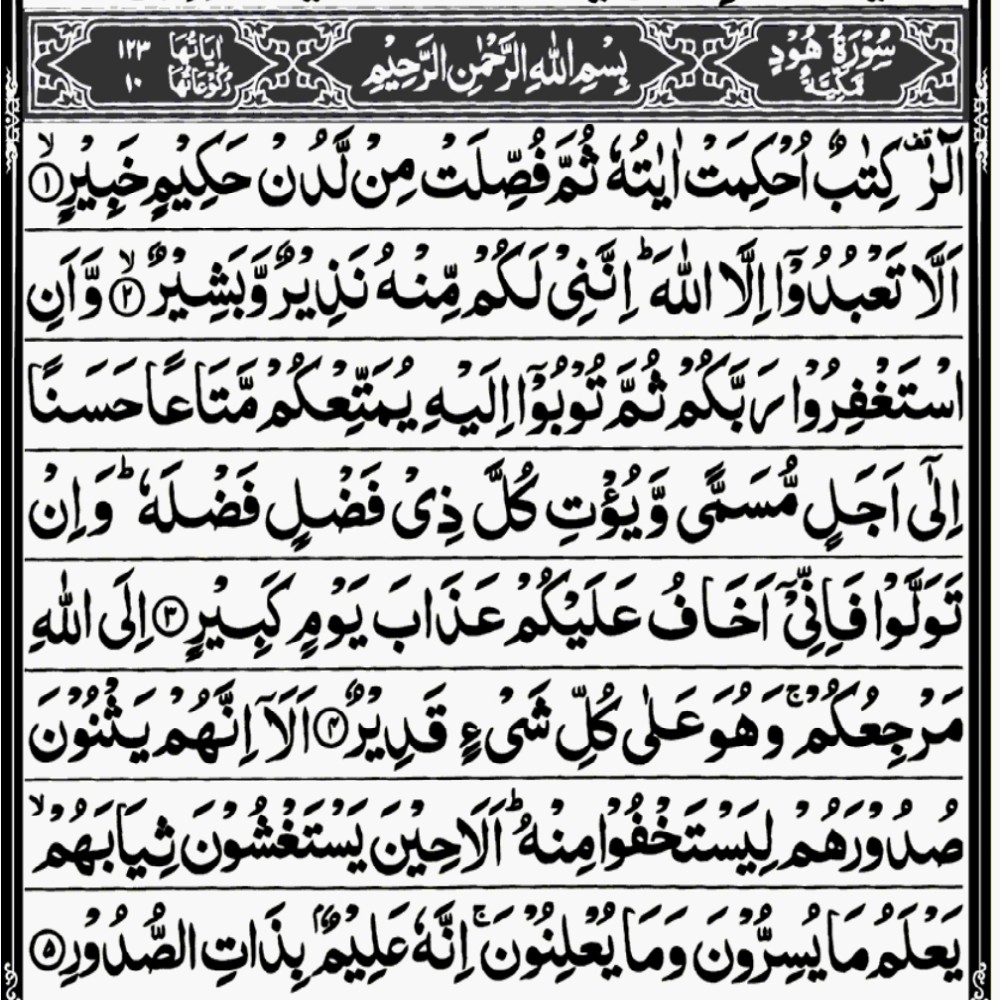 سُوْرَةُ هُوْدٍ مَكِّيَّةٌ بِسْمِ اللّٰهِ الرَّحْمٰنِ الرَّحِيْمِ اٰيَاتُهَا ١٢٣ رُكُوْعَاتُهَا ١٠
الٓرٰ ۫ كِتٰبٌ اُحْكِمَتْ اٰيٰتُهٗ ثُمَّ فُصِّلَتْ مِنْ لَّدُنْ حَكِيْمٍ خَبِيْرٍ ۙ﴿۱﴾
اَلَّا تَعْبُدُوْۤا اِلَّا اللّٰهَ ؕ اِنَّنِيْ لَكُمْ مِّنْهُ نَذِيْرٌ وَّبَشِيْرٌ ۙ﴿۲﴾ وَّاَنِ
اسْتَغْفِرُوْا رَبَّكُمْ ثُمَّ تُوْبُوْۤا اِلَيْهِ يُمَتِّعْكُمْ مَّتَاعًا حَسَنًا
اِلٰۤى اَجَلٍ مُّسَمًّى وَّيُؤْتِ كُلَّ ذِيْ فَضْلٍ فَضْلَهٗ ؕ وَاِنْ
تَوَلَّوْا فَاِنِّيْۤ اَخَافُ عَلَيْكُمْ عَذَابَ يَوْمٍ كَبِيْرٍ ﴿۳﴾ اِلَى اللّٰهِ
مَرْجِعُكُمْ ۚ وَهُوَ عَلٰى كُلِّ شَيْءٍ قَدِيْرٌ ﴿۴﴾ اَلَاۤ اِنَّهُمْ يَثْنُوْنَ
صُدُوْرَهُمْ لِيَسْتَخْفُوْا مِنْهُ ؕ اَلَا حِيْنَ يَسْتَغْشُوْنَ ثِيَابَهُمْ ۙ
يَعْلَمُ مَا يُسِرُّوْنَ وَمَا يُعْلِنُوْنَ ۚ اِنَّهٗ عَلِيْمٌۢ بِذَاتِ الصُّدُوْرِ ﴿۵﴾